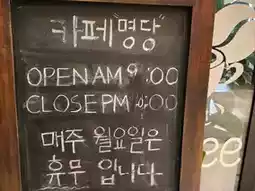 카페 "명당"
OPEN AM 9:00
CLOSE PM 6:00
매주 월요일은
휴무 입니다
ee